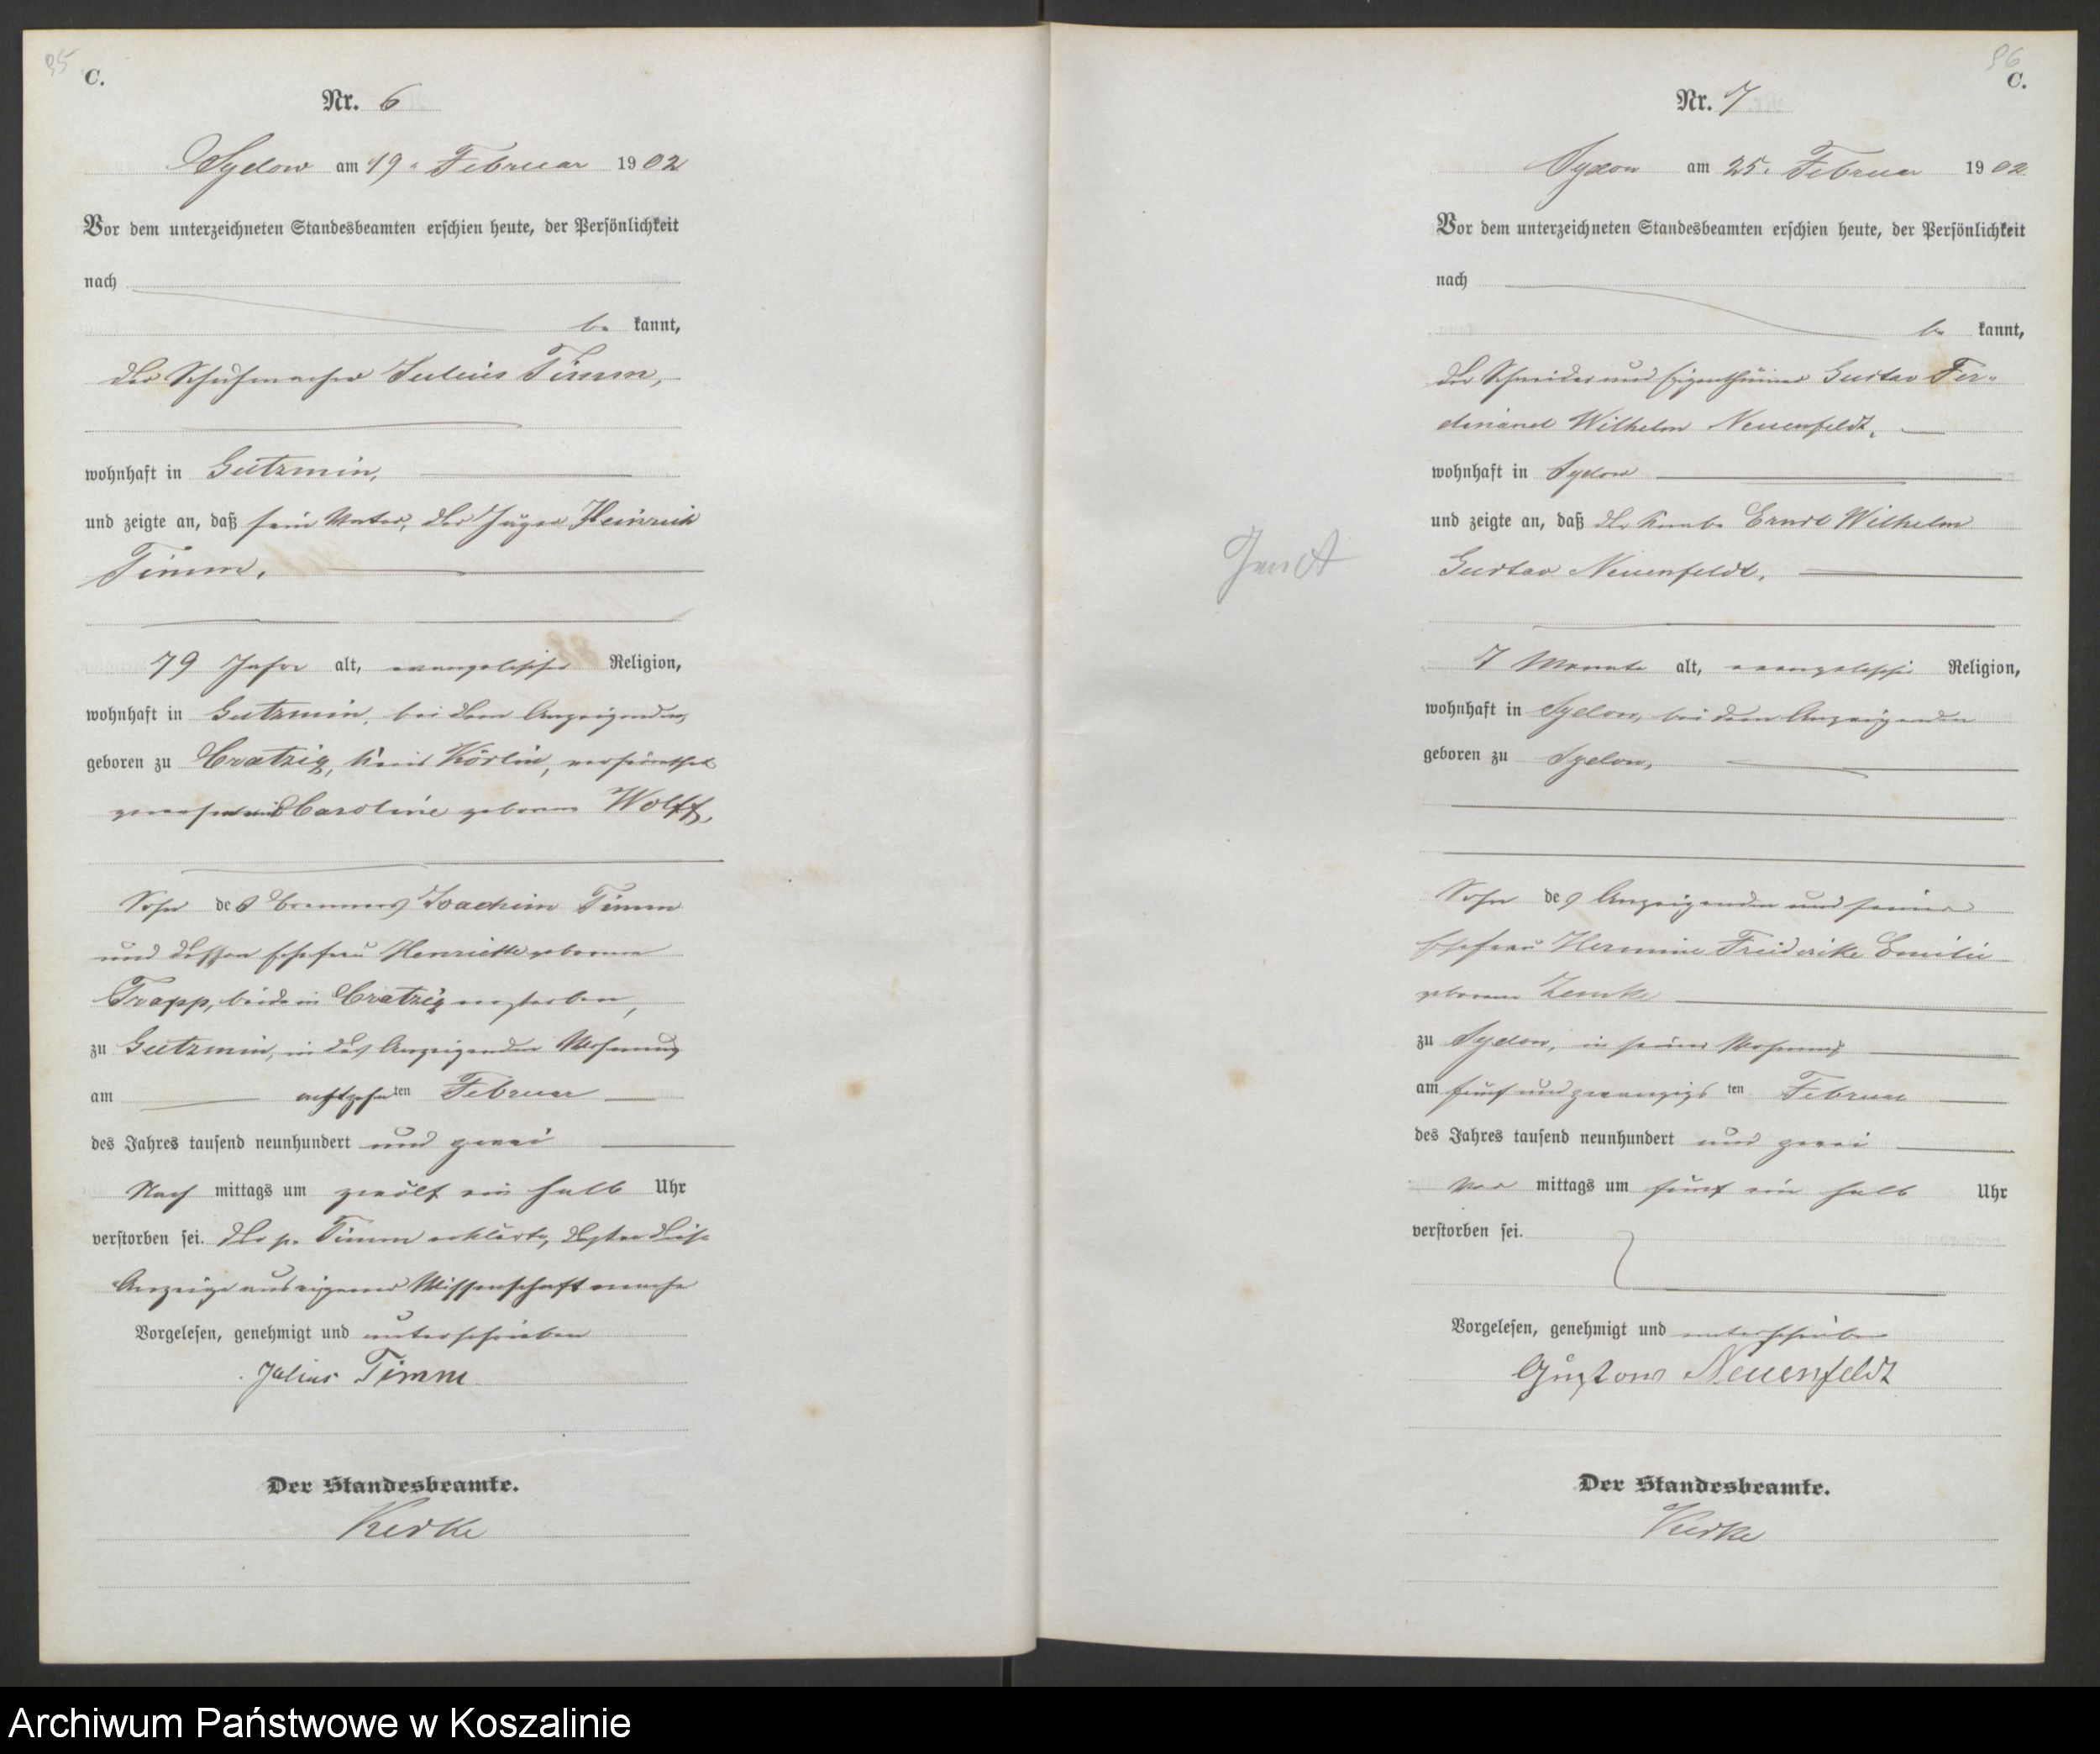 95
C.
Nr. 6
Sydow am 19. Februar 1902
Vor dem unterzeichneten Standesbeamten erschien heute, der Persönlichkeit
nach
be kannt,
der Schuhmacher Julius Timm,
wohnhaft in Gutzmin,
und zeigte an, daß sein Vater, der Jäger Heinrich
Timm,
79 Jahre alt, evangelischer Religion,
wohnhaft in Gutzmin, bei dem Anzeigenden,
geboren zu Cratzig, Kreis Körlin, verheirathet
gewesen mit Caroline geborene Wolff,
Sohn des Brenners Joachim Timm
und dessen Ehefrau Henriette geborene
Trapp, beide in Cratzig verstorben,
zu Gutzmin, in des Anzeigenden Wohnung
am achtzehn ten Februar
des Jahres tausend neunhundert und zwei
Nach mittags um zwölf ein halb Uhr
verstorben sei. Der p. Timm erklärte, daß er diese
Anzeige aus eigener Wissenschaft mache
Vorgelesen, genehmigt und unterschrieben
Julius Timm
Der Standesbeamte.
Kerke
96
C.
Nr. 7
Sydow am 25. Februar 1902
Vor dem unterzeichneten Standesbeamten erschien heute, der Persönlichkeit
nach
be kannt,
der Schneider und Eigenthümer Gustav Fer-
dinand Wilhelm Neuenfeldt,
wohnhaft in Sydow
und zeigte an, daß der Knabe Ernst Wilhelm
Gustav Neuenfeldt,
7 Monate alt, evangelischer Religion,
wohnhaft in Sydow, bei dem Anzeigenden
geboren zu Sydow,
Sohn des Anzeigenden und seiner
Ehefrau Hermine Friederike Emilie
geborene Zemke
zu Sydow, in seiner Wohnung
am fünf und zwanzigs ten Februar
des Jahres tausend neunhundert und zwei
Vor mittags um fünf ein halb Uhr
verstorben sei.
Vorgelesen, genehmigt und unterschrieben
Gustav Neuenfeldt
Der Standesbeamte.
Kerke
Archiwum Państwowe w Koszalinie